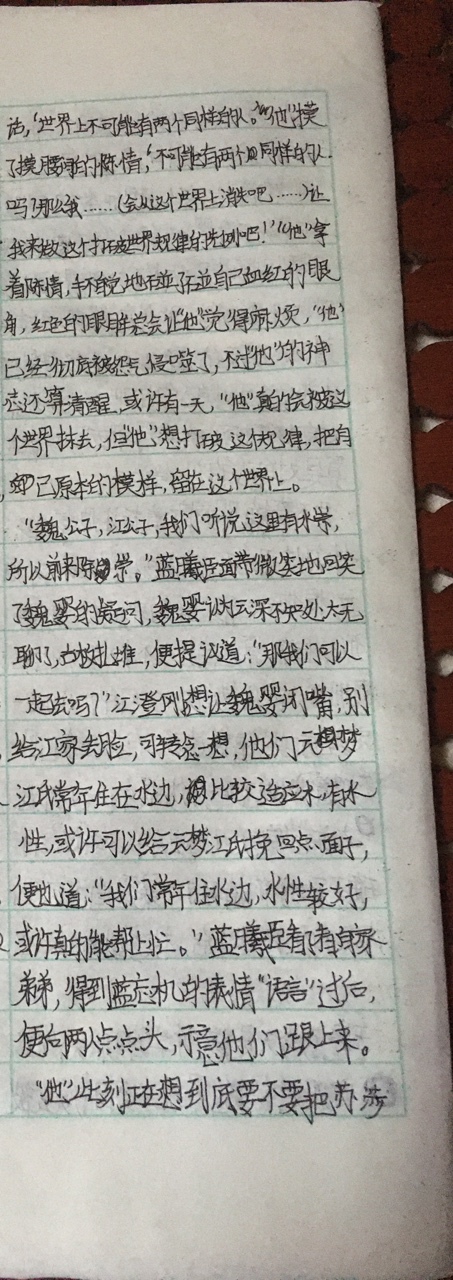 话,“世界上不可能有两个同样的人。”“他”摸
了摸腰间的陈情,“不可能有两个同样的人
吗?那么我……(会从这个世界上消失吧……)让
我来做这个打破世界规律的先例吧!”“他”拿
着陈情,手不自觉地碰了碰自己血红的眼
角,红色的眼眸总会让“他”觉得麻烦,“他”
已经彻底被怨气侵噬了,不过“他”的神
志还算清醒,或许有一天,“他”真的会被这
个世界抹去,但“他”想打破这个规律,把自
己原本的模样,留在这个世界上。
“魏公子,江公子,我们听说这里有水祟,
所以前来除祟。”蓝曦臣面带微笑地回答
了魏婴的疑问,魏婴认为云深不知处太无
聊了,古板扎堆,便提议道:“那我们可以
一起去吗?”江澄刚想让魏婴闭嘴,别
给江家丢脸,可转念一想,他们云梦
江氏常年住在水边,比较适应水,有水
性,或许可以给云梦江氏挽回点面子,
便也道:“我们常年住水边,水性较好,
或许真的能帮上忙。”蓝曦臣看了看自家
弟弟,得到蓝忘机的表情“语言”过后,
便向两人点点头,示意他们跟上来。
“他”此刻正在想到底要不要把苏涉